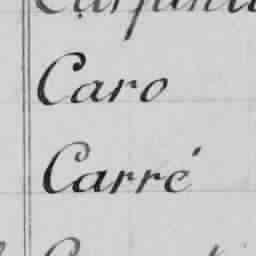 Caro
Carré